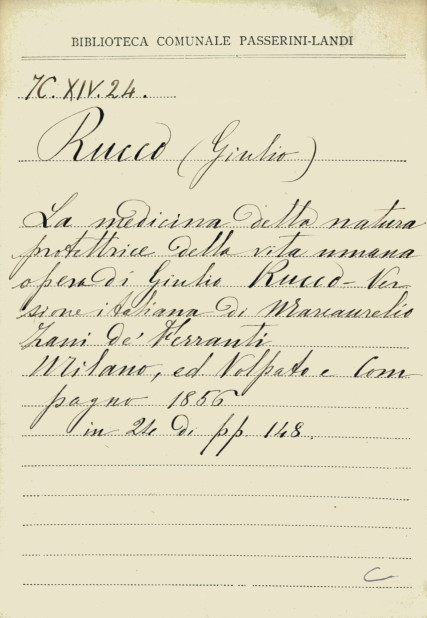 BIBLIOTECA COMUNALE PASSERINI-LANDI
7C. XIV. 24.
Rucco (Giulio)
La medicina della natura
protettrice della vita umana
opera di Giulio Rucco - Ver-
sione italiana di Marcaurelio
Zani de' Ferranti
Milano, ed Volpato e Com-
pagno 1856
in 24 di pp 148.
C